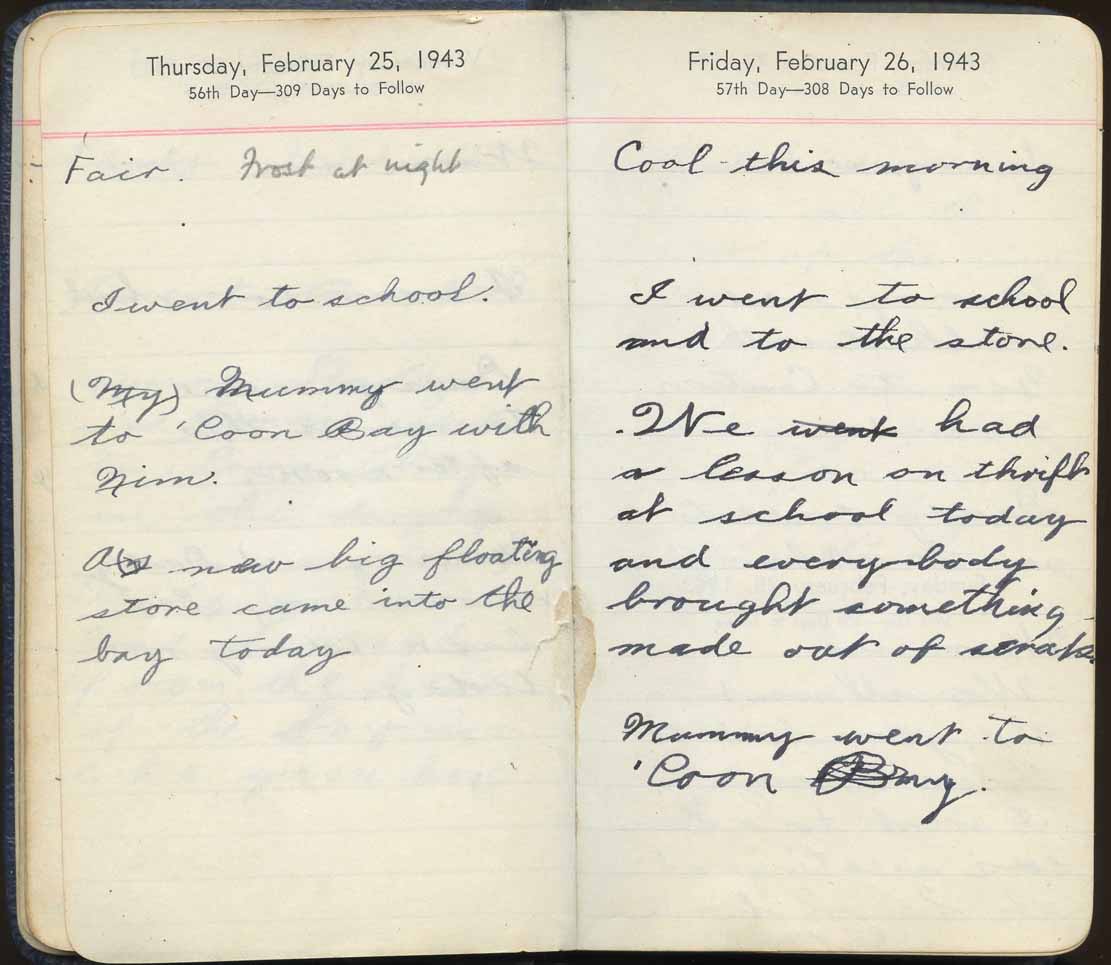 Thursday, February 25, 1943
56th Day—309 Days to Follow
Fair. Frost at night
I went to school.
(My) Mummy went
to 'Coon Bay with
Nim.
A new big floating
store came into the
bay today
Friday, February 26, 1943
57th Day—308 Days to Follow
Cool this morning
I went to school
and to the store.
We went had
a lesson on thrift
at school today
and everybody
brought something
made out of scraps.
Mummy went to
'Coon Bay.